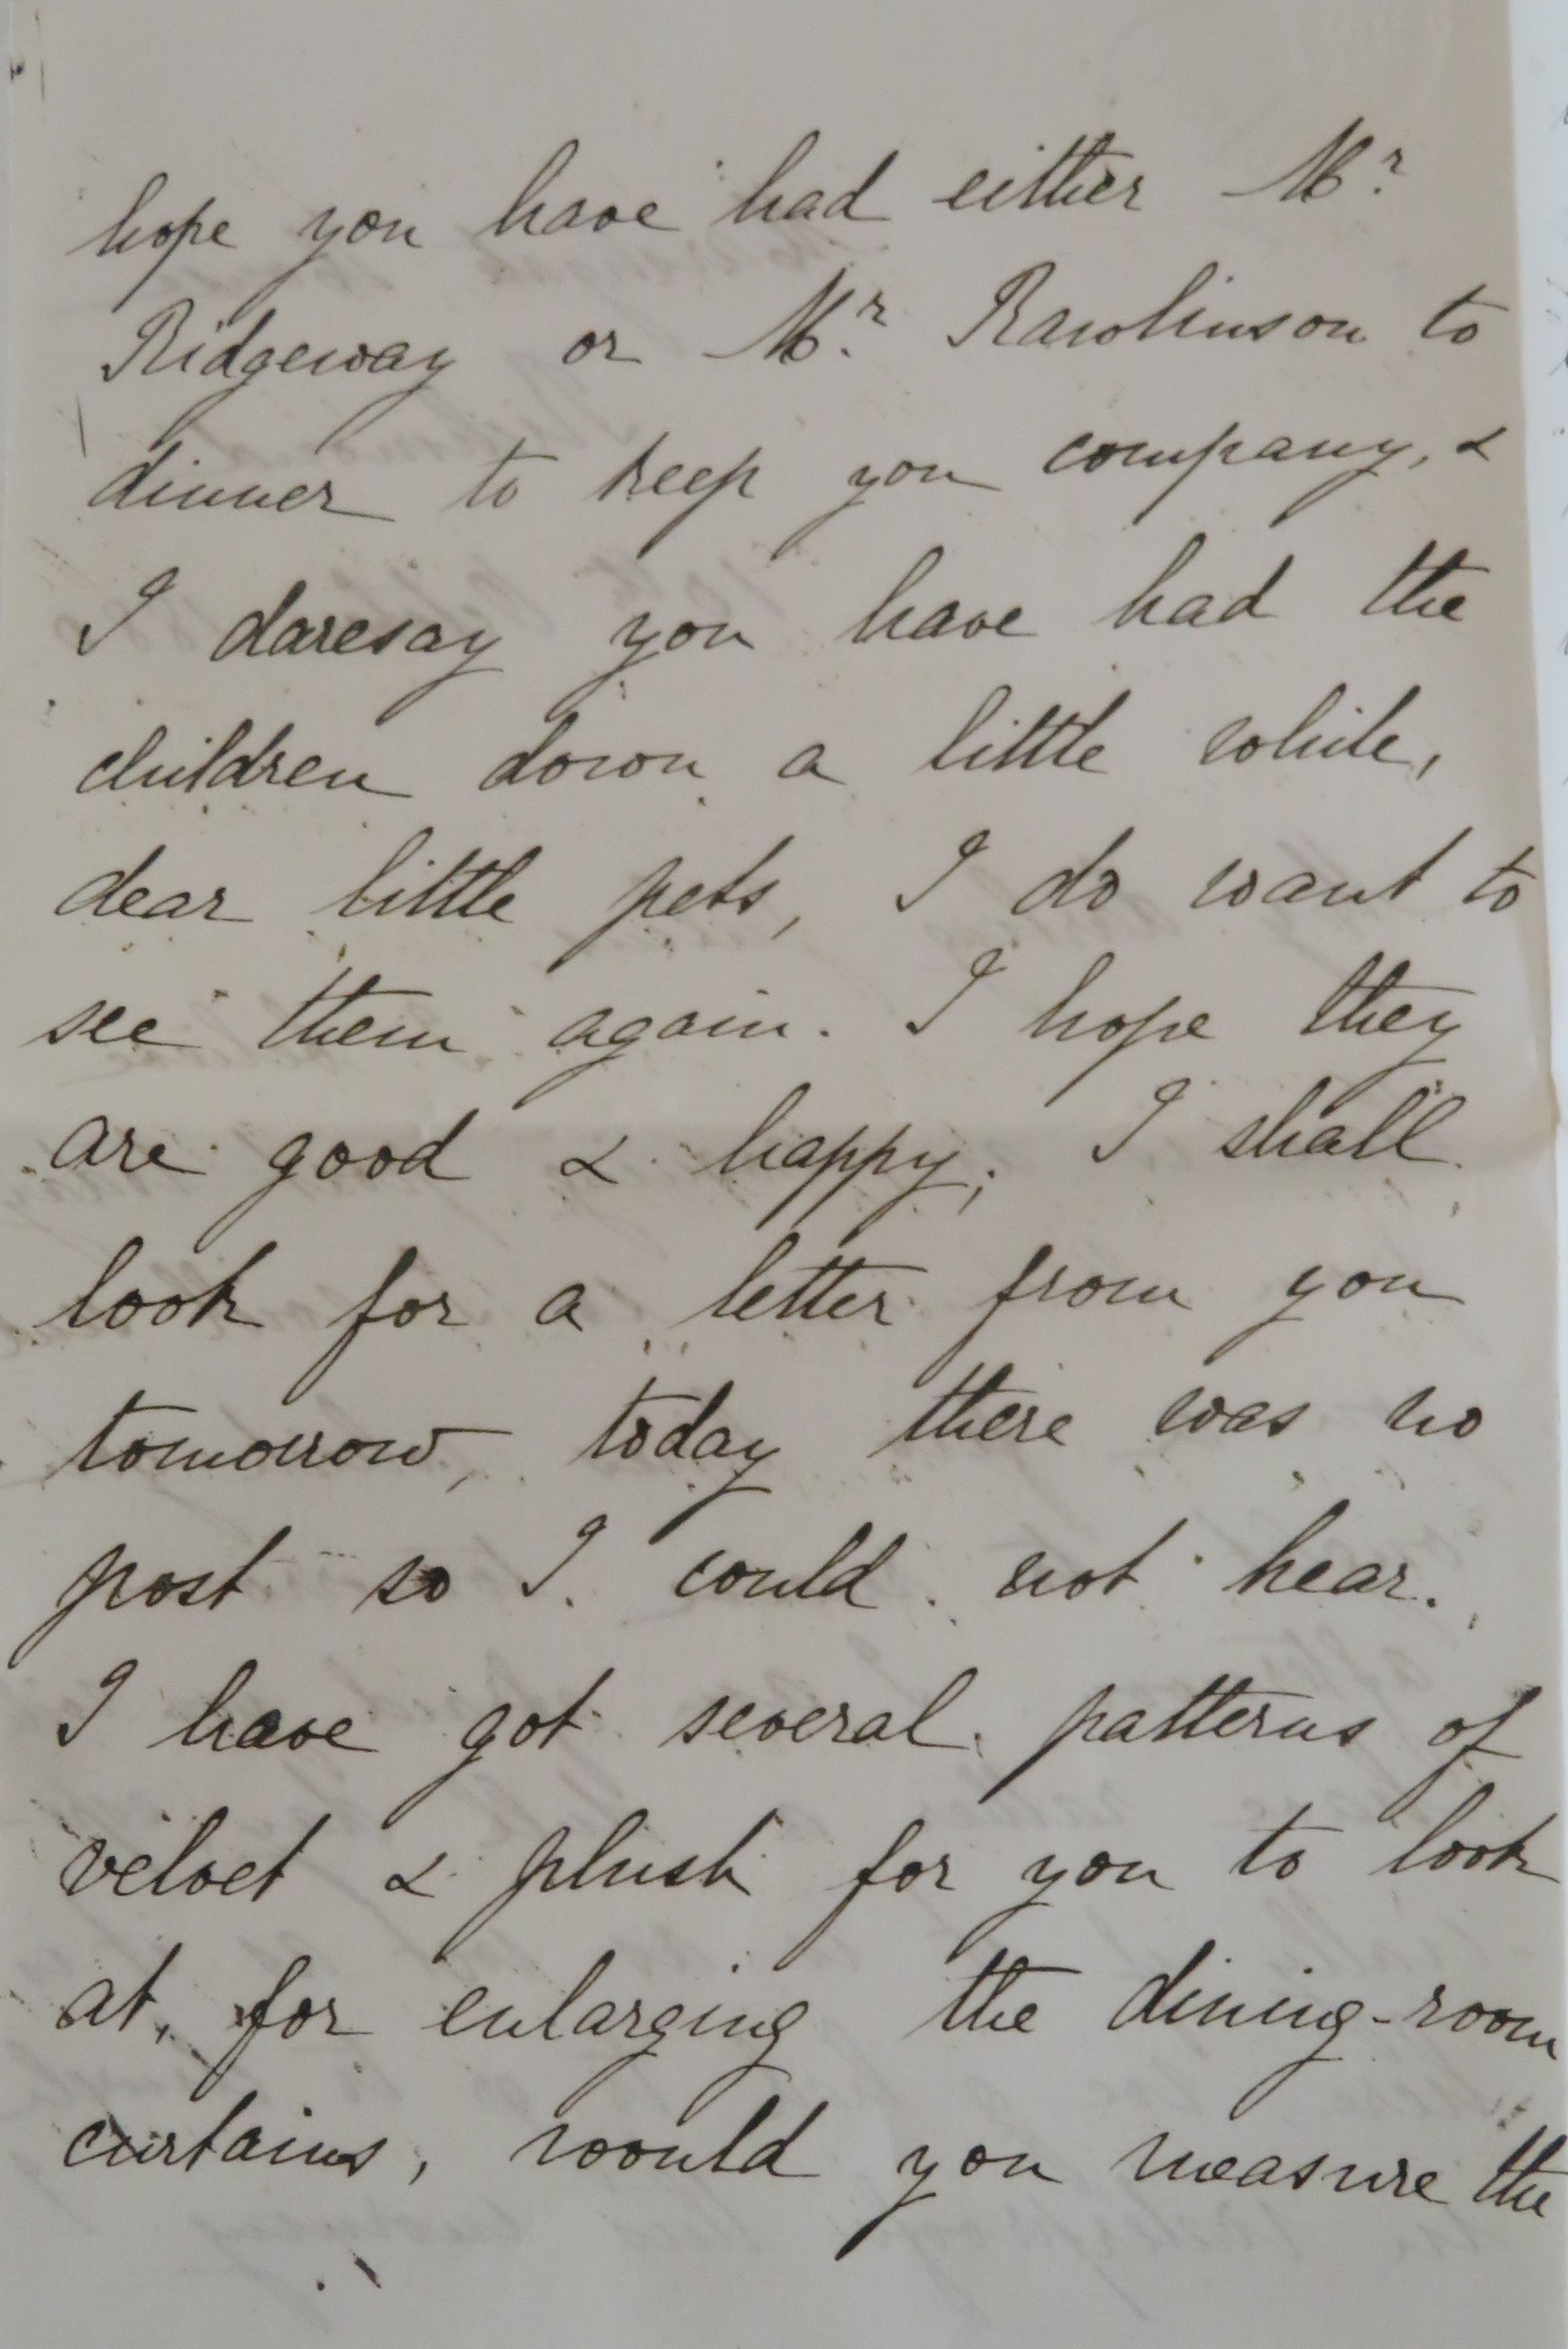 hope you have had either Mr.
Ridgeway or Mr. Rawlinson to
dinner to keep you company, &
I daresay you have had the
children down a little while,
dear little pets, I do want to
see them again. I hope they
are good & happy; I shall
look for a letter from you
tomorrow, today there was no
post so I could not hear.
I have got several patterns of
velvet & plush for you to look
at, for enlarging the dining-room
curtains, would you measure the